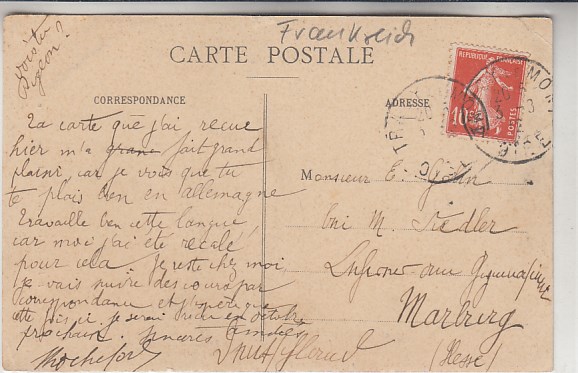 Frankreich
CARTE POSTALE
REPUBLIQUE FRANÇAISE
10c
POSTES
CORRESPONDANCE
La carte que j'ai recue
hier m'a grane fait grand
plaisir, car je vois que tu
te plais bien en allemagne
Travaille bien cette langue
car moi j'ai été recalé
pour cela. Je reste chez moi,
Je vais suivre des cours par
correspondance et j'espère que
cette fois ci je serai recu en octobre
prochain. Sincères amitiés
Rochefort
ADRESSE
Monsieur E.
bei M. Fiedler
am
Marburg
(Hesse)